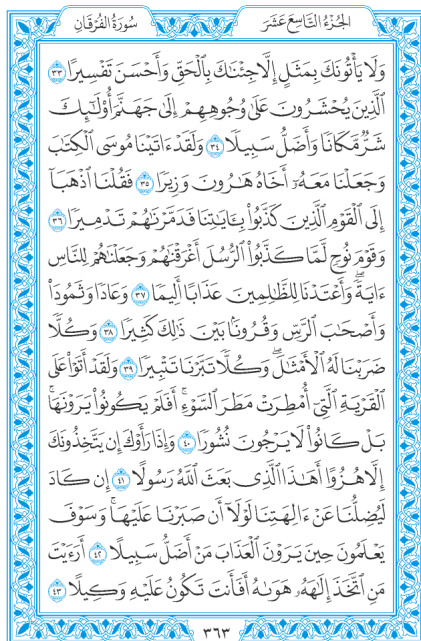 الجُزْءُ التَّاسِعَ عَشَرَ
سُورَةُ الفُرْقَانِ
وَلَا يَأْتُونَكَ بِمَثَلٍ إِلَّا جِئْنَٰكَ بِٱلْحَقِّ وَأَحْسَنَ تَفْسِيرًا ٣٣
ٱلَّذِينَ يُحْشَرُونَ عَلَىٰ وُجُوهِهِمْ إِلَىٰ جَهَنَّمَ أُو۟لَٰٓئِكَ
شَرٌّ مَّكَانًا وَأَضَلُّ سَبِيلًا ٣٤ وَلَقَدْ ءَاتَيْنَا مُوسَى ٱلْكِتَٰبَ
وَجَعَلْنَا مَعَهُۥٓ أَخَاهُ هَٰرُونَ وَزِيرًا ٣٥ فَقُلْنَا ٱذْهَبَآ
إِلَى ٱلْقَوْمِ ٱلَّذِينَ كَذَّبُوا۟ بِـَٔايَٰتِنَا فَدَمَّرْنَٰهُمْ تَدْمِيرًا ٣٦
وَقَوْمَ نُوحٍ لَّمَّا كَذَّبُوا۟ ٱلرُّسُلَ أَغْرَقْنَٰهُمْ وَجَعَلْنَٰهُمْ لِلنَّاسِ
ءَايَةً ۖ وَأَعْتَدْنَا لِلظَّٰلِمِينَ عَذَابًا أَلِيمًا ٣٧ وَعَادًا وَثَمُودَا۟
وَأَصْحَٰبَ ٱلرَّسِّ وَقُرُونًۢا بَيْنَ ذَٰلِكَ كَثِيرًا ٣٨ وَكُلًّا
ضَرَبْنَا لَهُ ٱلْأَمْثَٰلَ ۖ وَكُلًّا تَبَّرْنَا تَتْبِيرًا ٣٩ وَلَقَدْ أَتَوْا۟ عَلَى
ٱلْقَرْيَةِ ٱلَّتِىٓ أُمْطِرَتْ مَطَرَ ٱلسَّوْءِ ۚ أَفَلَمْ يَكُونُوا۟ يَرَوْنَهَا ۚ
بَلْ كَانُوا۟ لَا يَرْجُونَ نُشُورًا ٤٠ وَإِذَا رَأَوْكَ إِن يَتَّخِذُونَكَ
إِلَّا هُزُوًا أَهَٰذَا ٱلَّذِى بَعَثَ ٱللَّهُ رَسُولًا ٤١ إِن كَادَ
لَيُضِلُّنَا عَنْ ءَالِهَتِنَا لَوْلَآ أَن صَبَرْنَا عَلَيْهَا ۚ وَسَوْفَ
يَعْلَمُونَ حِينَ يَرَوْنَ ٱلْعَذَابَ مَنْ أَضَلُّ سَبِيلًا ٤٢ أَرَءَيْتَ
مَنِ ٱتَّخَذَ إِلَٰهَهُۥ هَوَىٰهُ أَفَأَنتَ تَكُونُ عَلَيْهِ وَكِيلًا ٤٣
٣٦٣